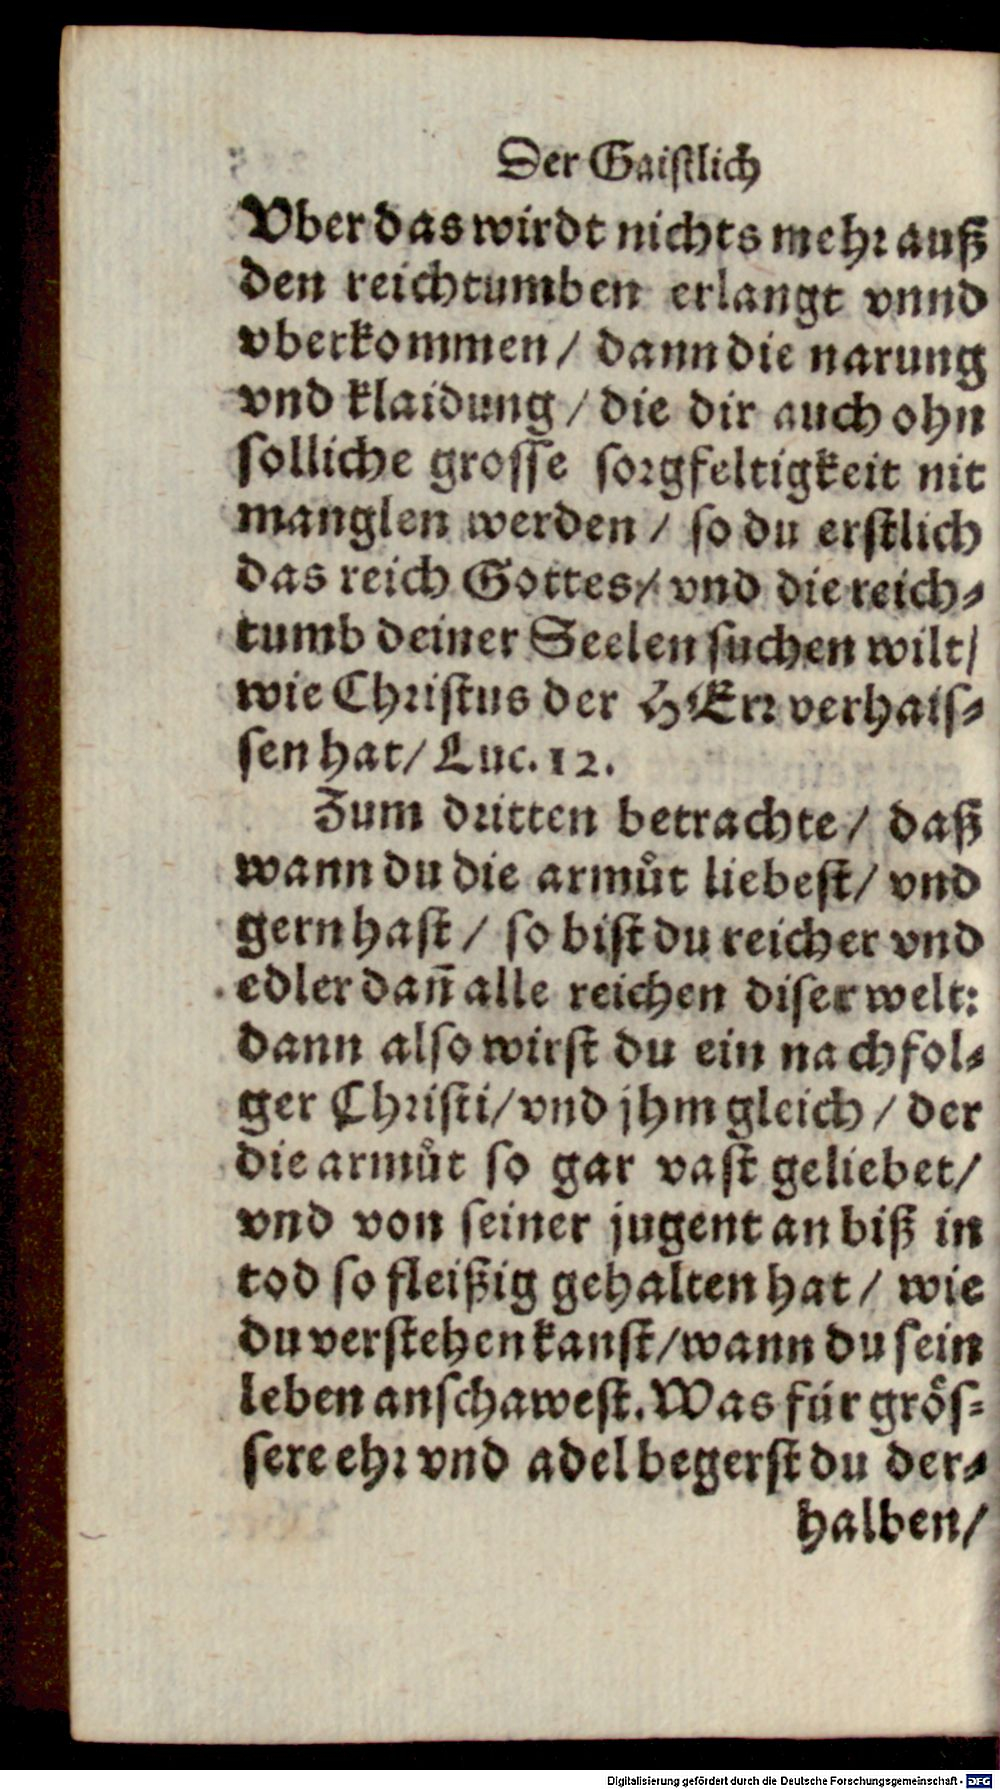 Der Gaistlich
Vber das wirdt nichts mehr auß
den reichtumben erlangt vnnd
vberkommen / dann die narung
vnd klaidung / die dir auch ohn
solliche grosse sorgfeltigkeit nit
manglen werden / so du erstlich
das reich Gottes / vnd die reich-
tumb deiner Seelen suchen wilt /
wie Christus der HErr verhais-
sen hat / Luc. 12.
Zum dritten betrachte / daß
wann du die armůt liebest / vnd
gern hast / so bist du reicher vnd
edler dañ alle reichen diser welt:
dann also wirst du ein nachfol-
ger Christi / vnd jhm gleich / der
die armůt so gar vast geliebet /
vnd von seiner jugent an biß in
tod so fleißig gehalten hat / wie
du verstehen kanst / wann du sein
leben anschawest. Was für grös-
sere ehr vnd adel begerst du der-
halben /
Digitalisierung gefördert durch die Deutsche Forschungsgemeinschaft - DFG